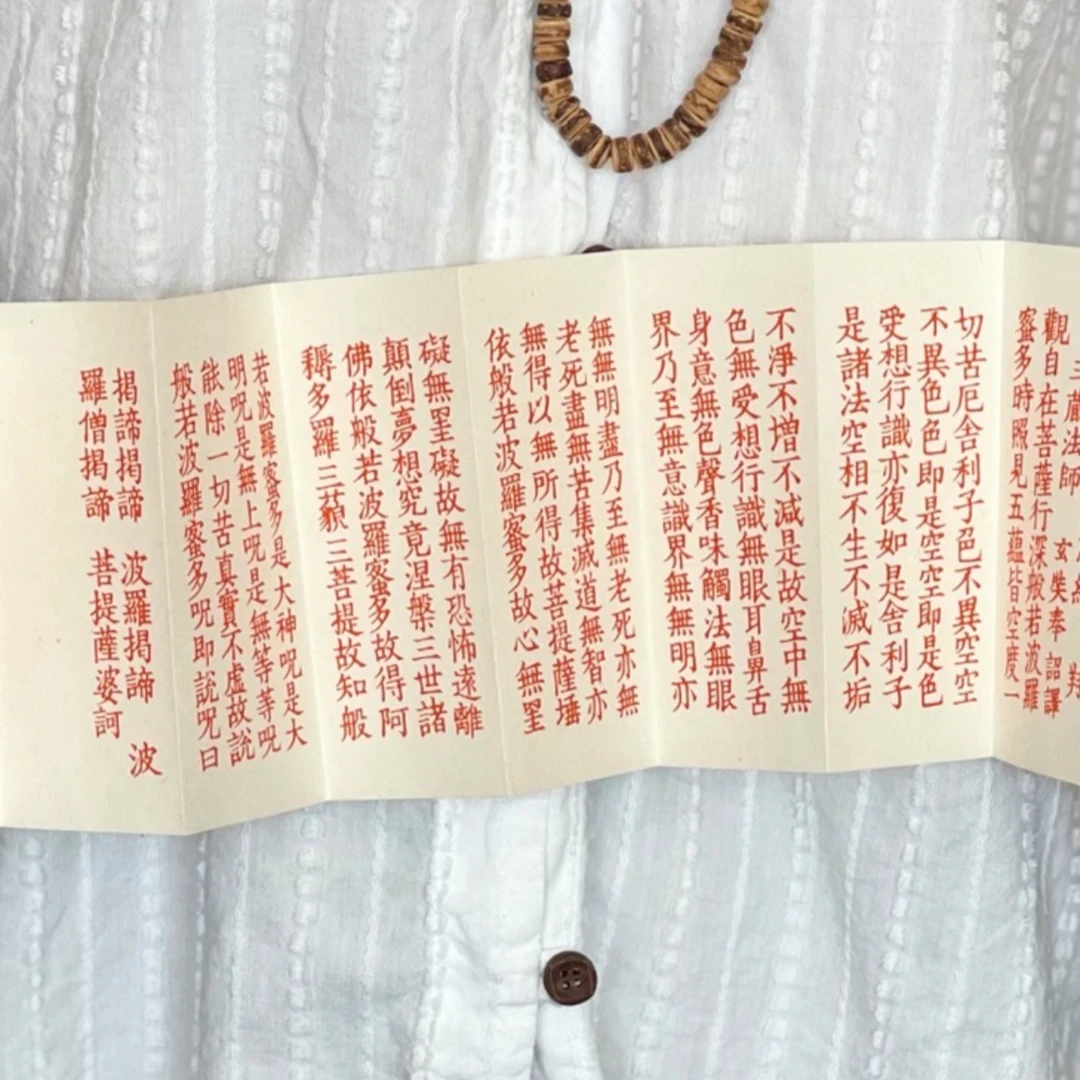 三藏法師 玄奘奉 詔譯
觀自在菩薩行深般若波羅
蜜多時照見五蘊皆空度一
切苦厄舍利子色不異空空
不異色色即是空空即是色
受想行識亦復如是舍利子
是諸法空相不生不滅不垢
不淨不增不減是故空中無
色無受想行識無眼耳鼻舌
身意無色聲香味觸法無眼
界乃至無意識界無無明亦
無無明盡乃至無老死亦無
老死盡無苦集滅道無智亦
無得以無所得故菩提薩埵
依般若波羅蜜多故心無罣
礙無罣礙故無有恐怖遠離
顛倒夢想究竟涅槃三世諸
佛依般若波羅蜜多故得阿
耨多羅三藐三菩提故知般
若波羅蜜多是大神呪是大
明呪是無上呪是無等等呪
能除一切苦真實不虛故說
般若波羅蜜多呪即說呪曰
揭諦揭諦 波羅揭諦 波
羅僧揭諦 菩提薩婆訶